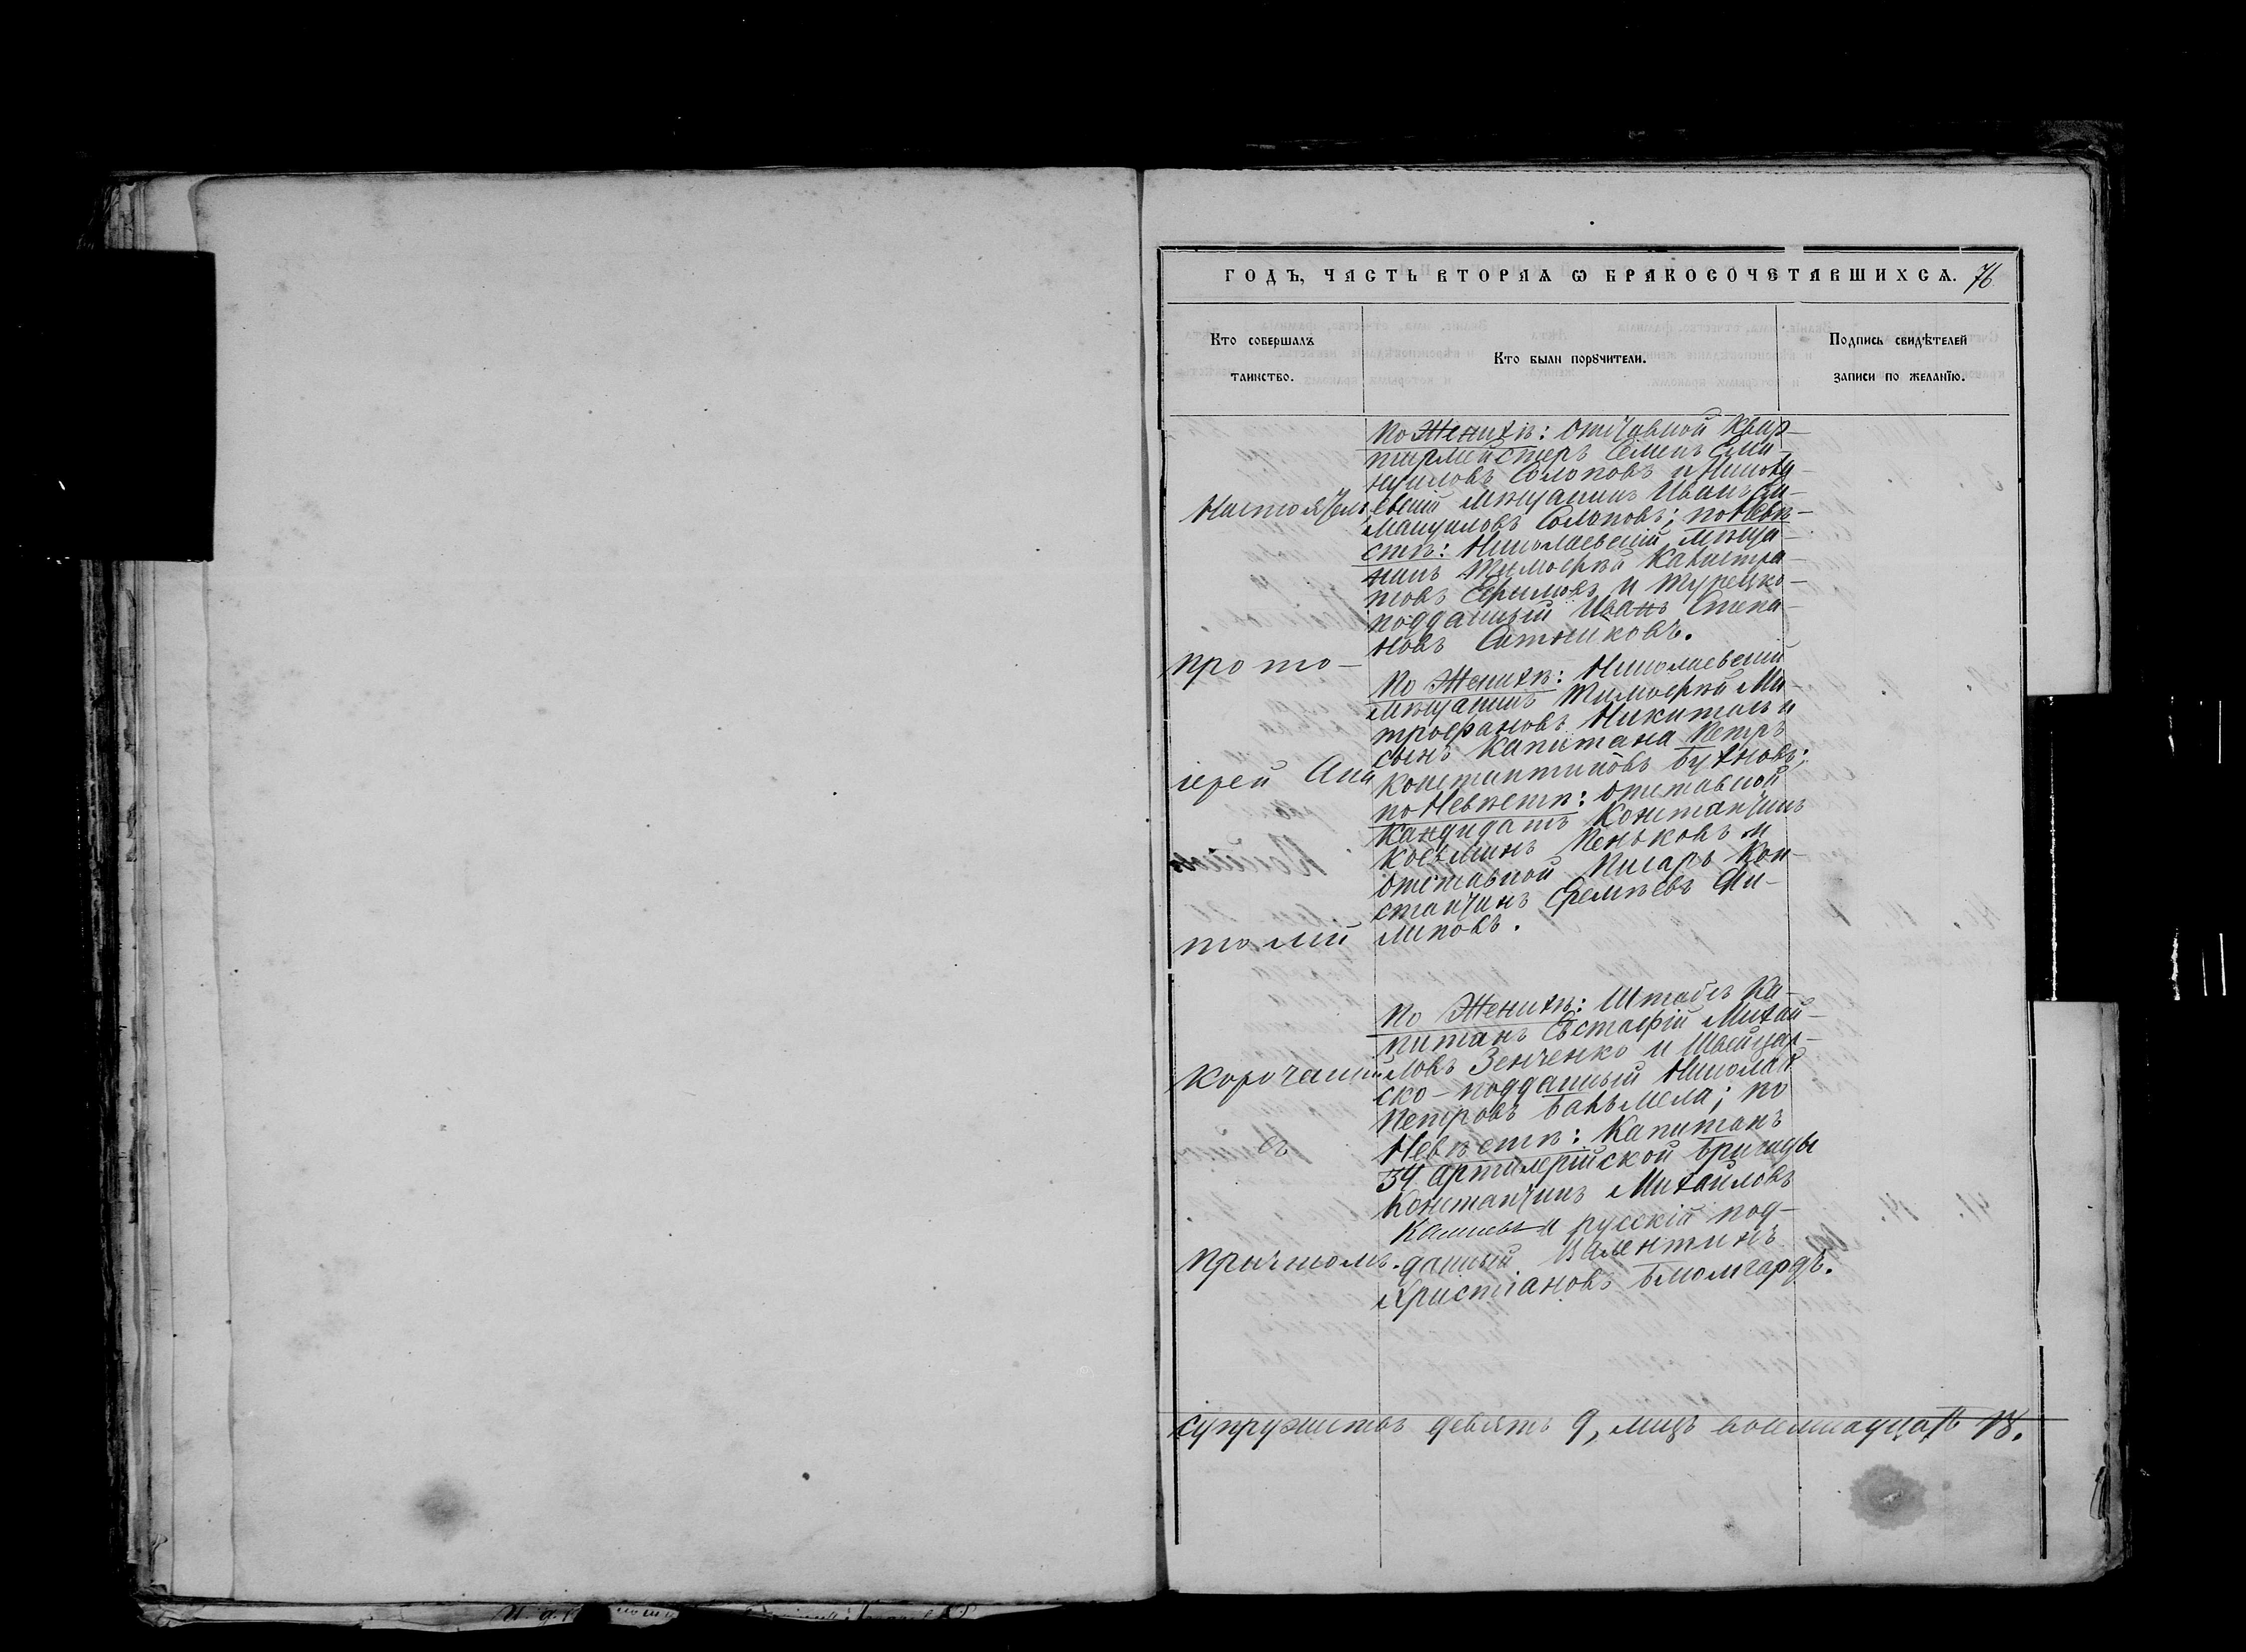 ГОДЪ, ЧАСТЬ ВТОРАѦ Ѡ БРАКОСОЧЕТАВШИХСѦ. 76
Кто совершалъ
таинство.
Кто были порꙋчители.
Подпись свидѣтелей
записи по желанїю.
Настоятель
прото-
іерей Ана
толій
Корочанскій
съ
причтомъ.
По Женихѣ: Отставной Квар-
тирмейстеръ Семенъ
Солоповъ и Никола-
евскій мѣщанинъ Иванъ
Солоповъ; по Невѣ-
стѣ: Николаевскій мѣща-
нинъ Тимоѳей Калистра-
товъ Ефимовъ и турецко-
подданный Иванъ Степа-
новъ Ситниковъ.
По Женихѣ: Николаевскій
мѣщанинъ Тимоѳей Ми-
трофановъ Никитинъ и
сынъ Капитана Петръ
Константиновъ Бухновъ;
по Невѣстѣ: отставной
Кандидатъ Константинъ
Косьминъ Пеньковъ и
отставной Писарь Кон-
стантинъ Еремѣевъ Фи-
липовъ.
По Женихѣ: Штабсъ Ка-
питанъ Евстафій Михай-
ловъ Зенченко и Швейцар-
ско-подданный Николай
Петровъ по
Невѣстѣ: Капитанъ
34 Артилерійской бригады
Константинъ Михайловъ
и русскій под-
данный Валентинъ
Христіановъ Блюмгардъ.
супружествъ девять 9, лицъ восемнадцать 18.